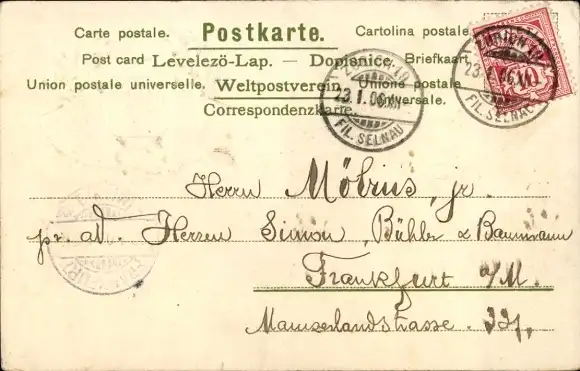 Carte postale. Postkarte. Cartolina postale.
Post card Levelezö-Lap. — Dopisnice. Briefkaart.
Union postale universelle. Weltpostverein. Unione postale universale.
Correspondenzkarte.
ZÜRICH 10
23.I.06.XII
FIL. SELNAU
ZÜRICH 10
FIL. SELNAU
Herrn Möbius, jr.
pr. ad. Herren Simon, Bühler & Baumann
Frankfurt a/M.
Mainzerlandstrasse.